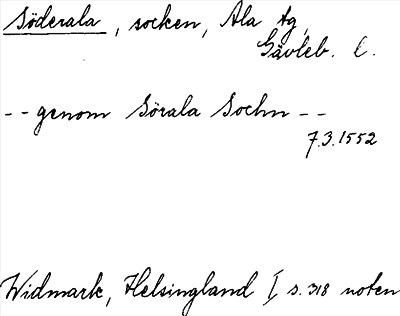 Söderala, socken, Ala tg,
Gävleb. l.
-- genom Sörala Sochn --
7.3.1552
Widmark, Helsingland I, s. 318 noten